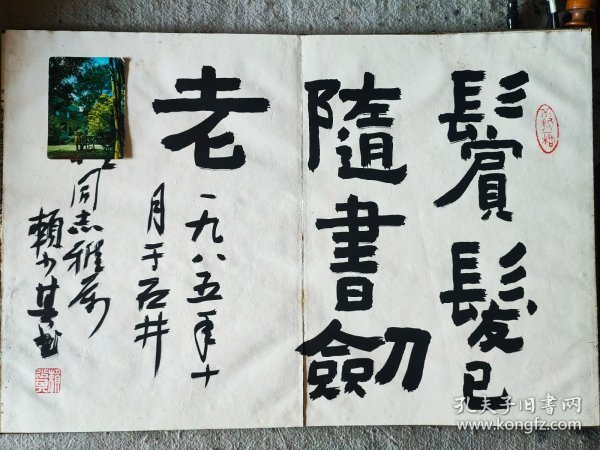 鬢髮已
隨書劍
老
一九八五年十
月于石井
同志雅屬
賴少其
孔夫子旧书网
www.kongfz.com